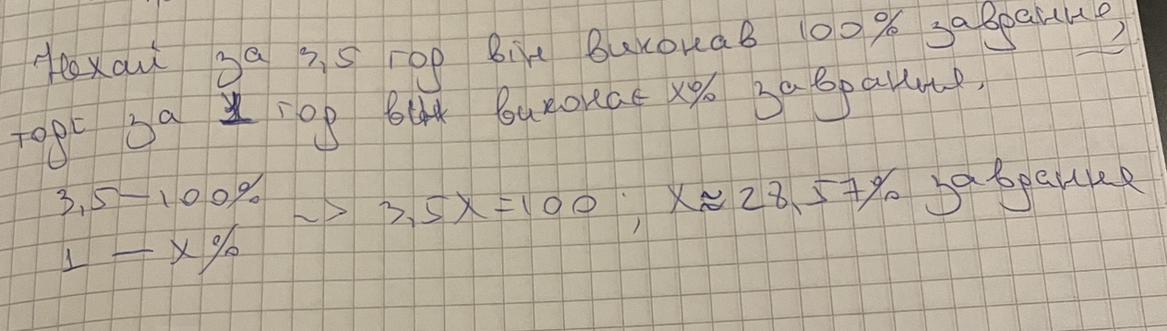 Нехай за 3,5 год він виконав 100% завдання,
тоді за 1 год він виконає x% завдання.
3,5 – 100%
~> 3,5x = 100 ; x ≈ 28,57% завдання
1 – x%